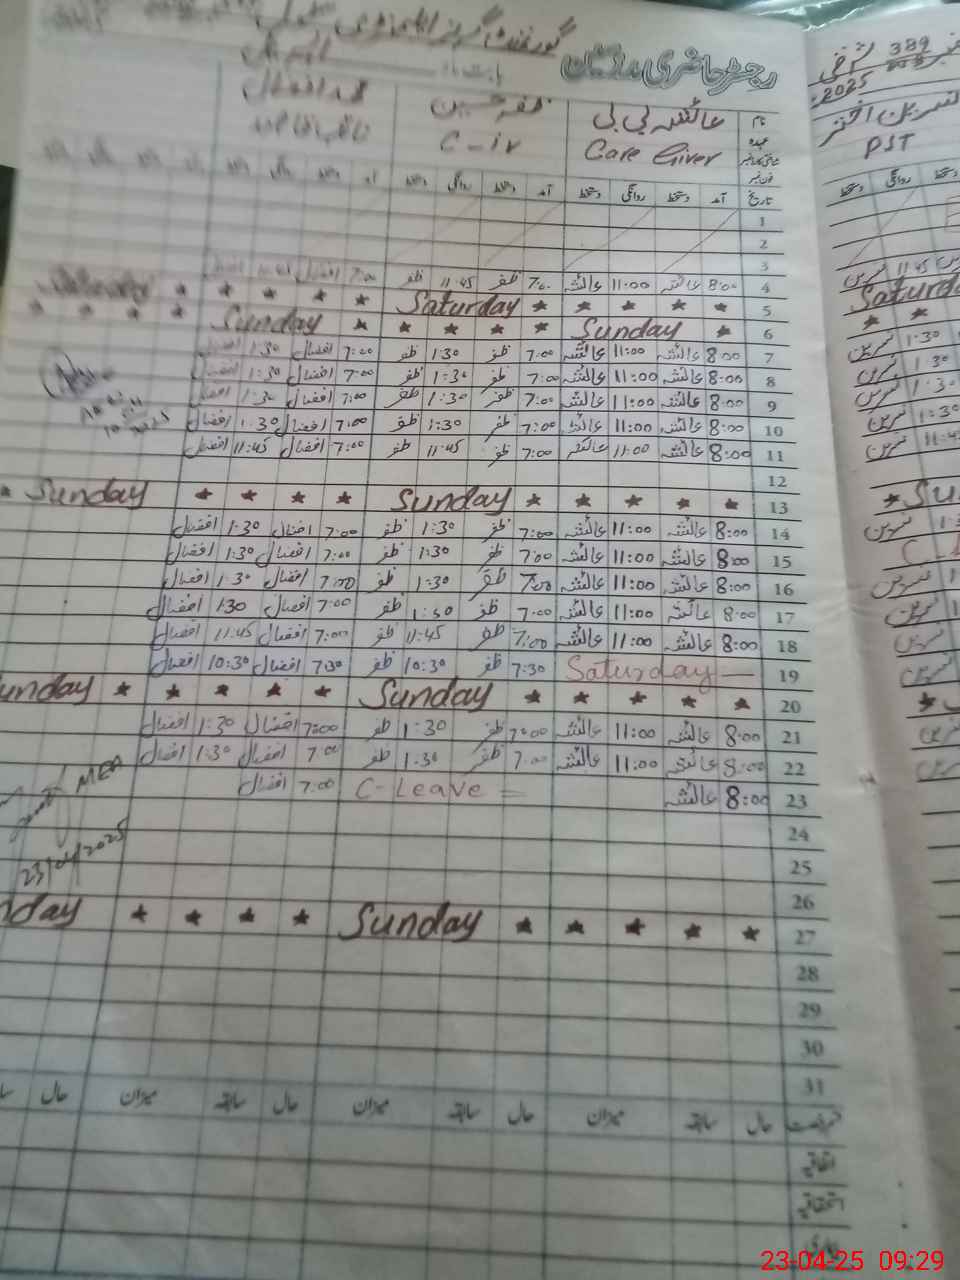 رجسٹر حاضری مدرسین
گورنمنٹ گرلز
نام عائشہ بی بی ظفر حسین محمد افضال
عہدہ Care Giver C-iv نائب قاصد
تاریخ آمد دستخط روانگی دستخط آمد دستخط روانگی دستخط
1
2
3
4 8:00 عائشہ 11:00 عائشہ 7:00 ظفر 11:45 ظفر 7:00 افضال
5 ★ ★ ★ ★ Saturday ★ ★ ★ ★ ★
6 ★ Sunday ★ ★ ★ ★ ★ Sunday ★ ★ ★ ★
7 8:00 عائشہ 11:00 عائشہ 7:00 ظفر 1:30 ظفر 7:00 افضال 1:30
8 8:00 عائشہ 11:00 عائشہ 7:00 ظفر 1:30 ظفر 7:00 افضال 1:30 افضال
9 8:00 عائشہ 11:00 عائشہ 7:00 ظفر 1:30 ظفر 7:00 افضال 1:30 افضال
10 8:00 عائشہ 11:00 عائشہ 7:00 ظفر 1:30 ظفر 7:00 افضال 1:30 افضال
11 8:00 عائشہ 11:00 عائشہ 7:00 ظفر 11:45 ظفر 7:00 افضال 11:45 افضال
12
13 ★ ★ ★ ★ ★ Sunday ★ ★ ★ ★ Sunday ★
14 8:00 عائشہ 11:00 عائشہ 7:00 ظفر 1:30 ظفر 7:00 افضال 1:30 افضال
15 8:00 عائشہ 11:00 عائشہ 7:00 ظفر 1:30 ظفر 7:00 افضال 1:30 افضال
16 8:00 عائشہ 11:00 عائشہ 7:00 ظفر 1:30 ظفر 7:00 افضال 1:30 افضال
17 8:00 عائشہ 11:00 عائشہ 7:00 ظفر 1:30 ظفر 7:00 افضال 1:30 افضال
18 8:00 عائشہ 11:00 عائشہ 7:00 ظفر 11:45 ظفر 7:00 افضال 11:45 افضال
19 Saturday — 7:30 ظفر 10:30 ظفر 7:30 افضال 10:30 افضال
20 ★ ★ ★ ★ ★ Sunday ★ ★ ★ ★ ★ unday
21 8:00 عائشہ 11:00 عائشہ 7:00 ظفر 1:30 ظفر 7:00 افضال 1:30 افضال
22 8:00 عائشہ 11:00 عائشہ 7:00 ظفر 1:30 ظفر 7:00 افضال 1:30 افضال
23 8:00 عائشہ C-Leave = 7:00 افضال
MEA
23/04/2025
24
25
26
27 ★ ★ ★ ★ ★ Sunday ★ ★ ★ ★ day
28
29
30
31
حال سابقہ میزان حال سابقہ میزان حال سابقہ میزان حال
اتفاقیہ
استحقاقیہ
389
2025
نسرین اختر
PST
دستخط روانگی
نسرین 11:45
Saturda
★ ★
نسرین 1:30
نسرین 1 30
نسرین 1:30
نسرین 1:30
نسرین 11:4
★ Su
نسرین
C-L
نسرین
نسرین
نسرین
نسرین
★
نسرین
نسرین
23-04-25 09:29